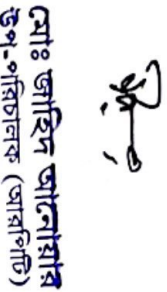 মোঃ জাহিদ আনোয়ার
উপ-পরিচালক (আরপিটি)